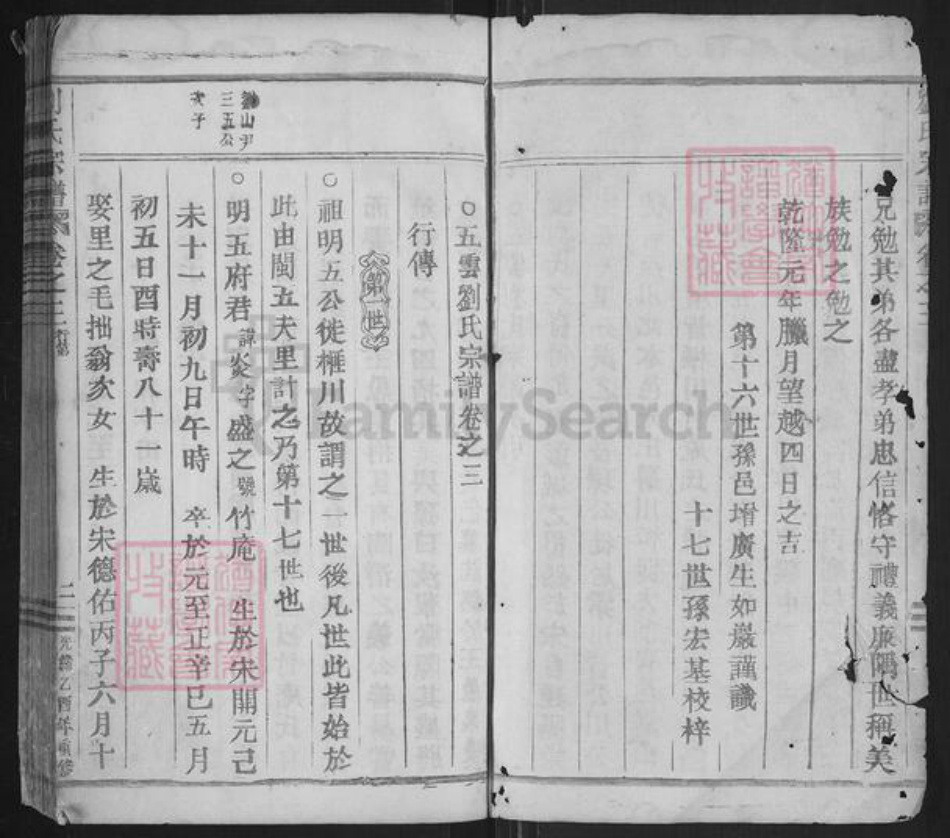 兄勉其弟各盡孝弟忠信恪守禮義廉隅世稱美
族勉之勉之
乾隆元年臘月望越四日之吉
第十六世孫邑增廣生如嚴謹識
十七世孫宏基校梓
○五雲劉氏宗譜卷之三
行傳
第一世
○祖明五公徙榧川故謂之一世後凡世此皆始於
此由閩五夫里計之乃第十七世也
山尹
三五公
次子
○明五府君諱炎字盛之號竹庵 生於宋開元己
未十一月初九日午時 卒於元至正辛巳五月
初五日酉時壽八十一歲
娶里之毛拙翁次女 生於宋德佑丙子六月十
氏宗譜 卷之三 行第 二 光緒乙酉年重修
FamilySearch